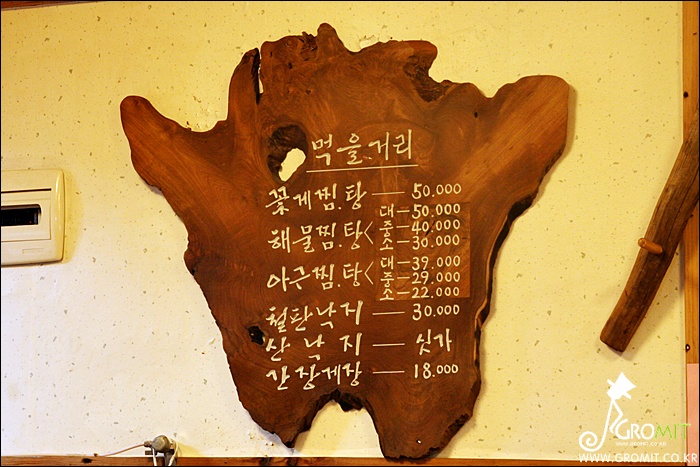 먹을거리
꽃게찜.탕 — 50.000
해물찜.탕< 대 — 50.000
중 — 40.000
소 — 30.000
아근찜.탕< 대 — 39.000
중 — 29.000
소 — 22.000
철판낙지 — 30.000
산낙지 — 싯가
간장게장 — 18.000
GROMIT
www.gromit.co.kr
WWW.GROMIT.CO.KR